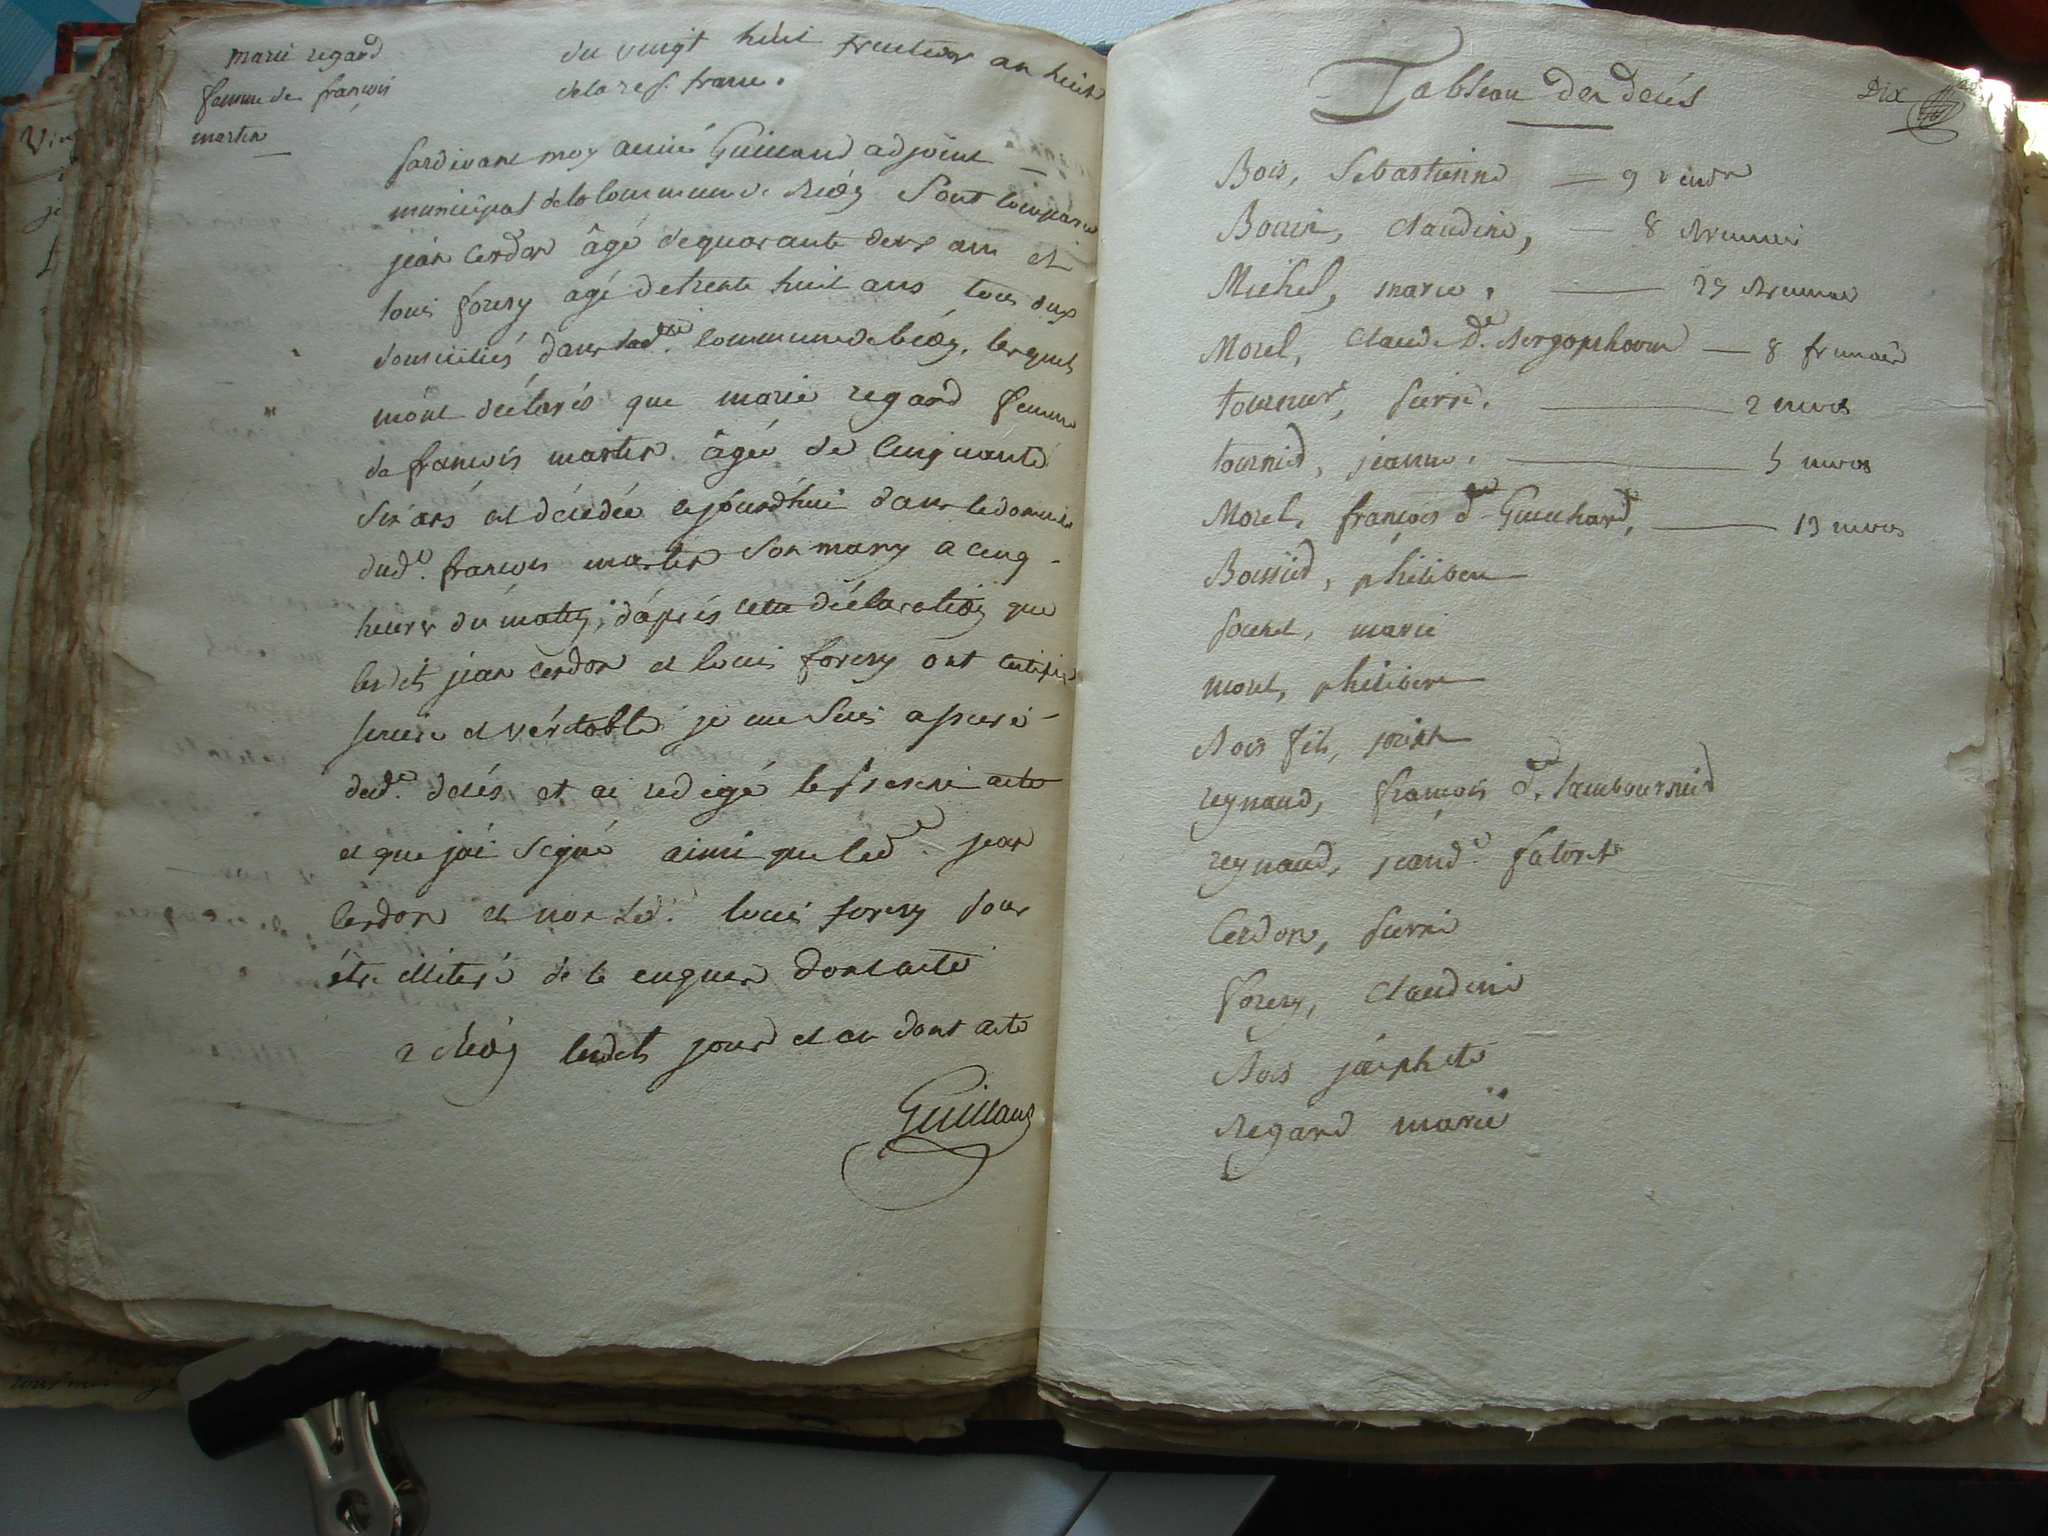 marie regard
femme de françois
martin
du vingt huit fructidor an huit
de la rep. franc.
pardevant moy aimé Guilland adjoint
municipal de la commune de Rion sont comparu
jean Cerdon âgé de quarante deux ans et
louis foresy agé de trente huit ans tous deux
domiciliés dans lad.e commune de , lesquels
mont déclarés que marie regard femme
de françois martin âgée de Cinquante
six ans est décédée cejourd'huis dans le domicile
dud.t françois martin son mary a cinq
heures du matin, d'après cette déclaration que
lesdits jean cerdon et louis foresy ont certifié
sincere et véritable je me suis assuré
dud.t decés et ai redigé le present acte
et que j'ai signé ainsi que led.t jean
Cerdon et non led.t louis foresy pour
être illiteré de le enquer dont acte
a lesdits jour et an dont acte
Guilland
Tableau des decés
Dix
Bois, Sebastienne — 9 vend.re
Bouvi, Claudine, — 8 Brumaire
Michel, marie, — 29 Brumaire
Morel, Claude d.t — 8 frimaire
tournier, pierre, — 2 nivos
tournier, jeanne, — 5 nivos
Morel, françois d.t Guichard, — 13 nivos
Boissied, philibert
, marie
morel, philibert
Bois fils, joseph
reynaud, françois d.t tambournied
reynaud, jean d.t
Cerdon, pierre
foresy, Claudine
Bois josephete
Regard marie